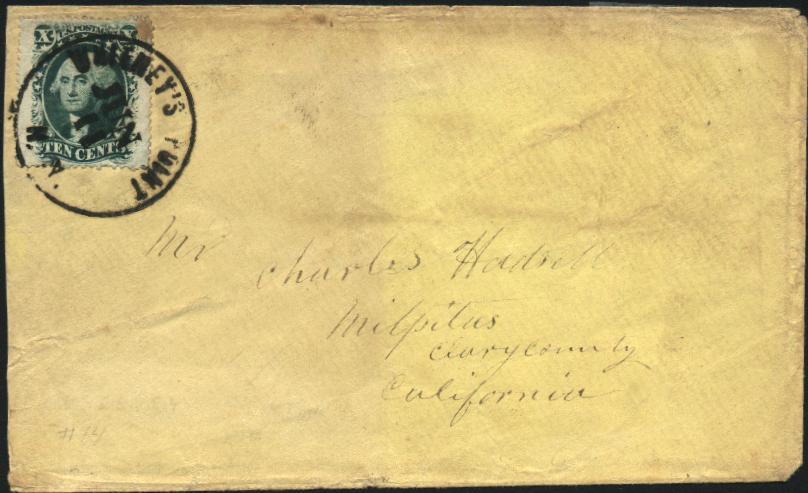 X U.S. POSTAGE X
TEN CENTS
WHITNEY'S POINT
N.Y.
JUN
Mr
Charles Hadsell
Milpitus
Clary county
California
#14